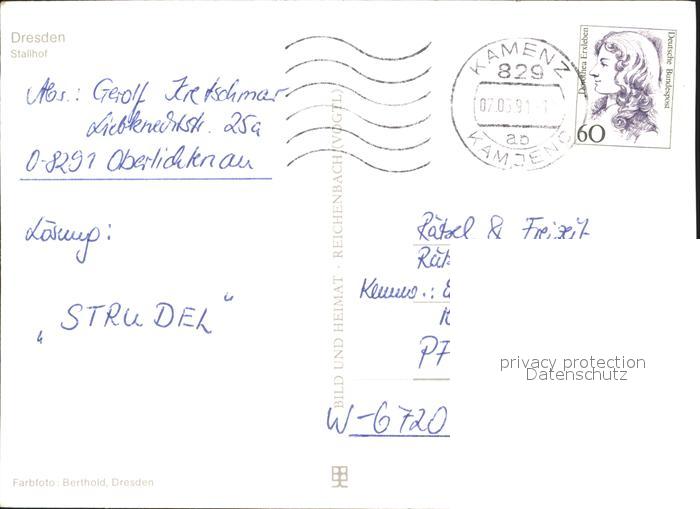 Dresden
Stallhof
Abs.: Gerolf Kretschmar
Liebknechtstr. 25a
O-8291 Oberlichtenau
Lösung:
„STRUDEL"
Farbfoto: Berthold, Dresden
BILD UND HEIMAT · REICHENBACH (VOGTL)
KAMENZ
829
07.05.91
ab
KAMJENC
Dorothea Erxleben
Deutsche Bundespost
60
Rätsel & Freizeit
Rät
Kennw.:
PF
W-6720
privacy protection
Datenschutz